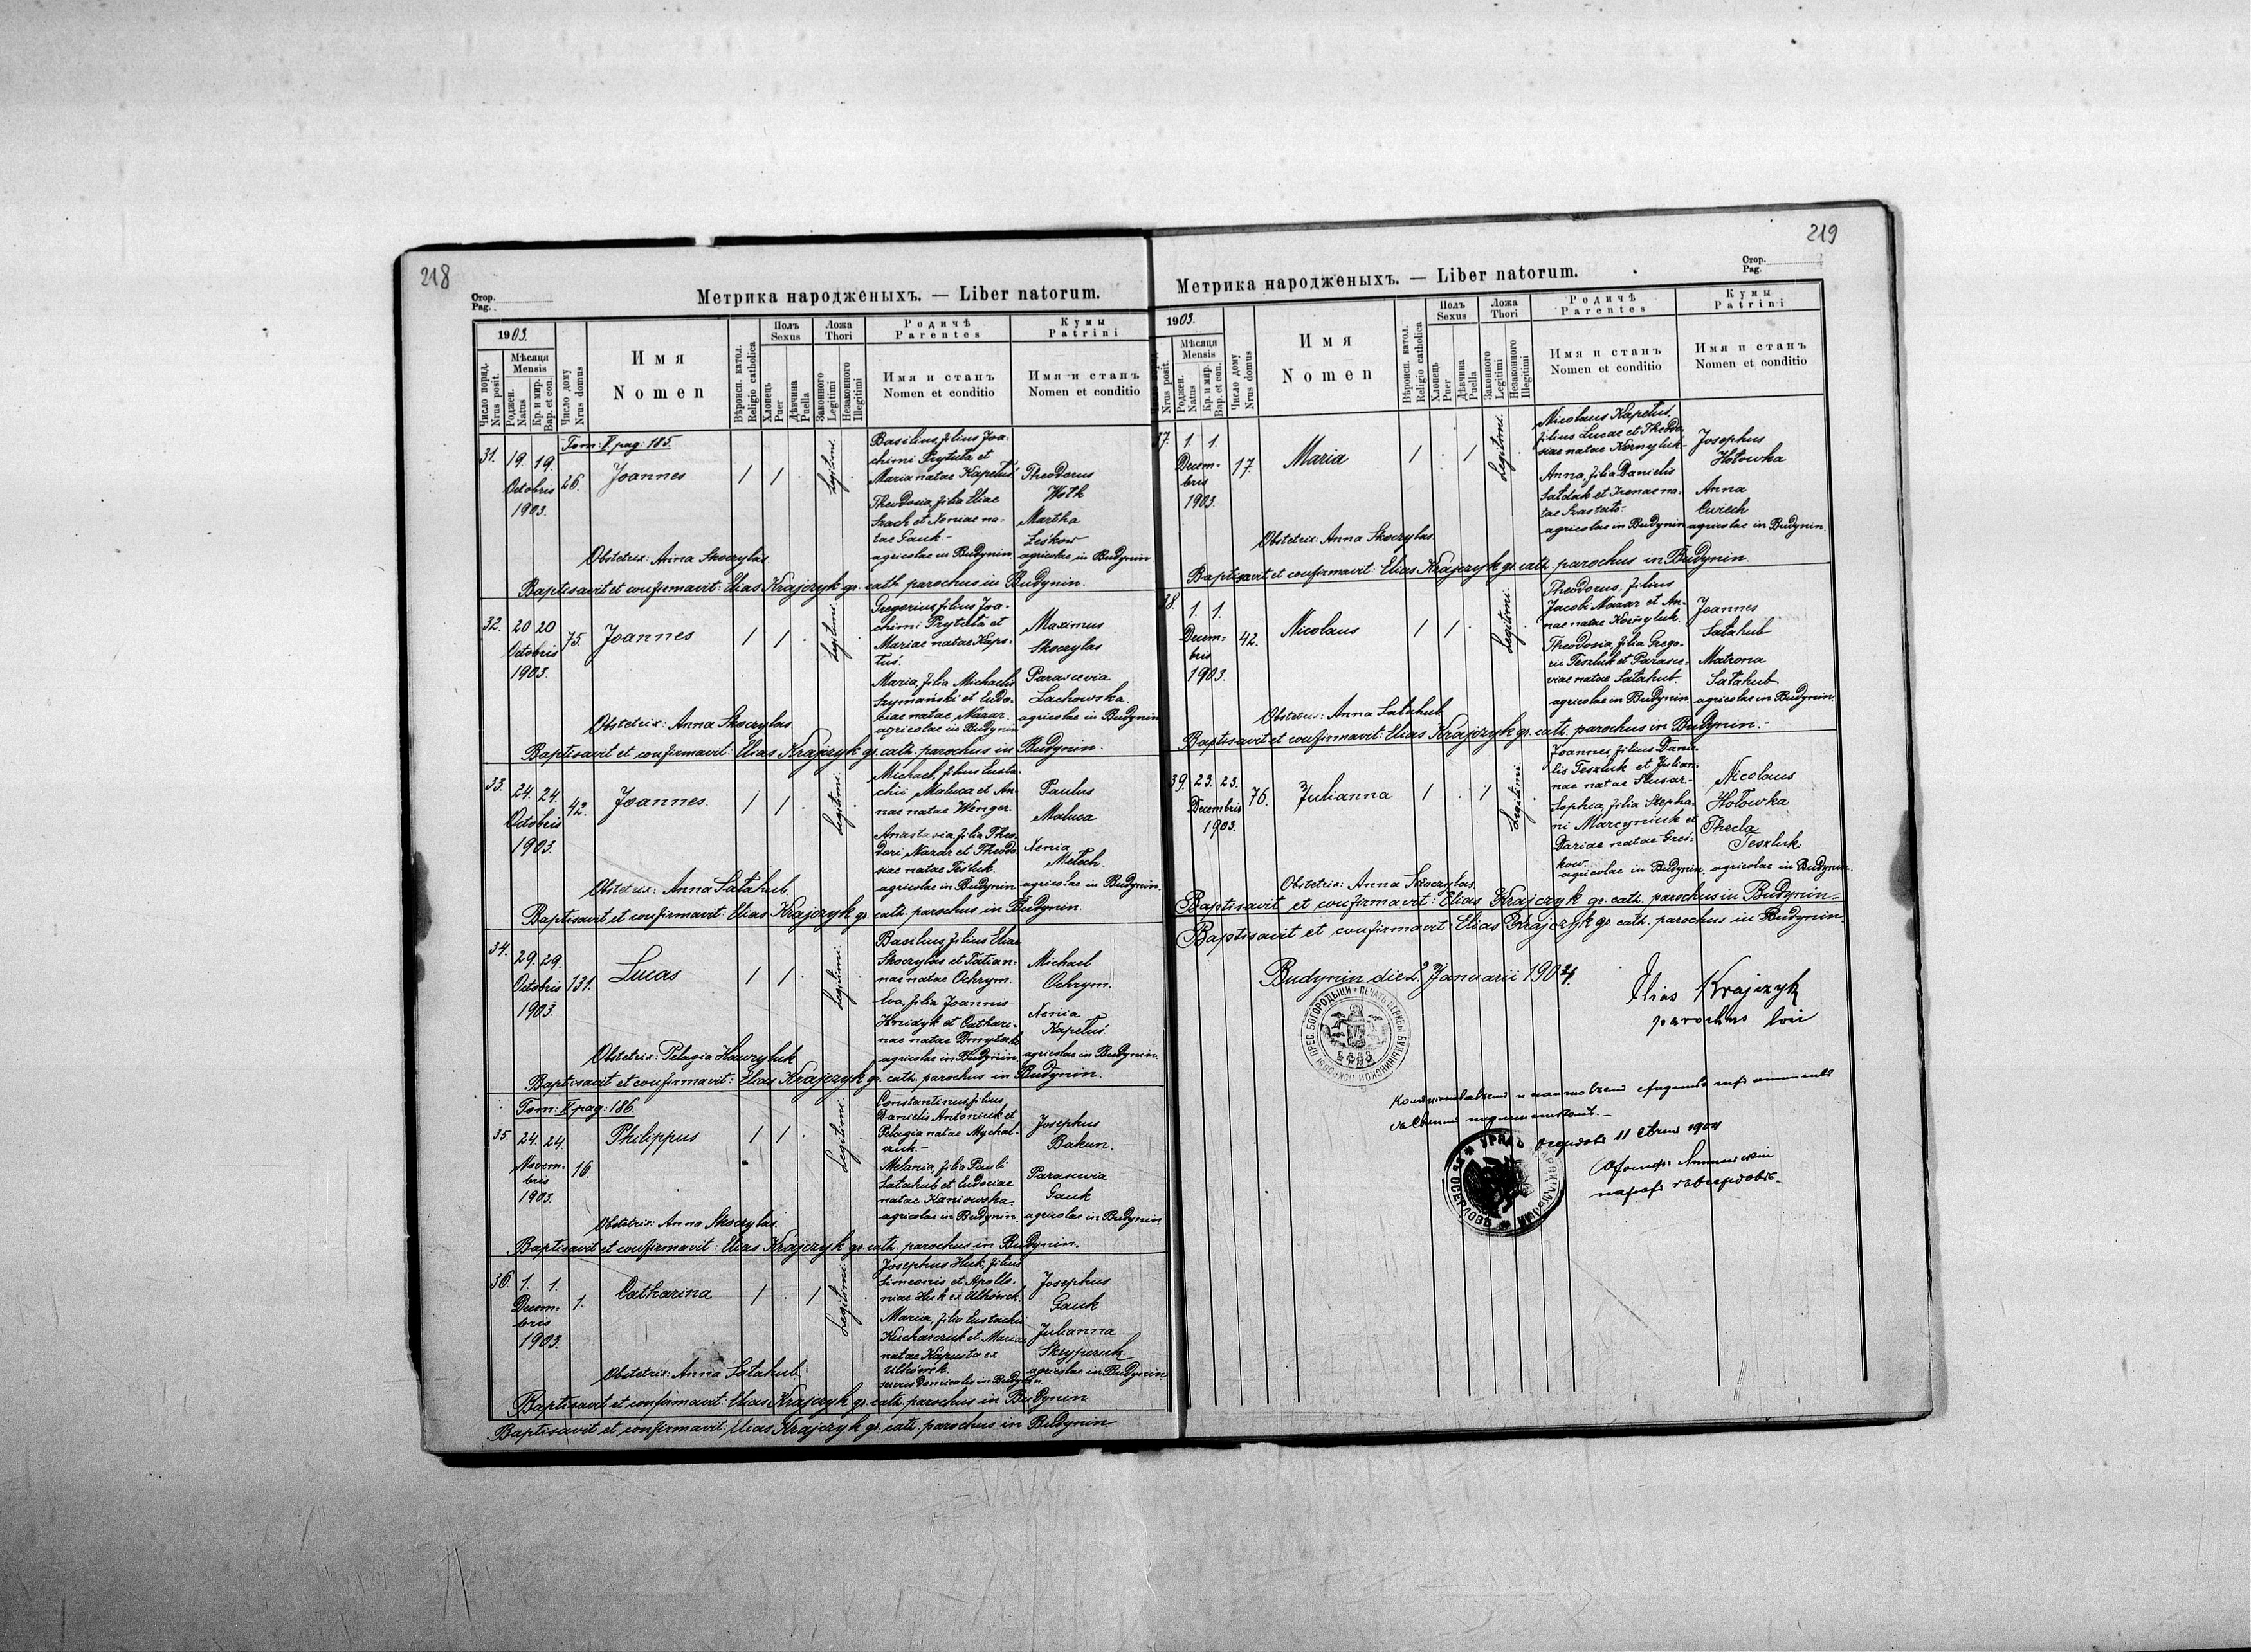 218
Стор.
Pag.
Метрика народженыхъ. — Liber natorum.
1903.
Число поряд.
Nrus posit.
Мѣсяця
Mensis
Роджен.
Natus
Кр. и мир.
Bap. et con.
Число дому
Nrus domus
Имя
Nomen
Вѣроисп. катол.
Religio catholica
Полъ
Sexus
Хлопець
Puer
Дѣвчина
Puella
Ложа
Thori
Законного
Legitimi
Незаконного
Illegitimi
Родичѣ
Parentes
Имя и станъ
Nomen et conditio
Кумы
Patrini
Имя и станъ
Nomen et conditio
Tom: V pag: 185.
31.
19. 19.
Octobris
1903.
26.
Joannes
1 1 .
Legitimi.
Basilius, filius Joa-
chimi Prytuła et
Maria natae Kapeluś
Theodosia, filia Eliae
Szach et Xeniae na-
tae Gauk.-
agricolae in Budynin.
Theodorus
Martha
Leśkow
agricolae in Budynin
Obstetrix: Anna Skoczylas
Baptisavit et confirmavit: Elias Krajczyk gr. cath. parochus in Budynin.
32.
20 20
Octobris
1903.
75.
Joannes
1 1 .
Legitimi.
Gregorius, filius Joa-
chimi Prytuła et
Mariae natae Kape-
luś.
Maria, filia Michaelis
Szymański et Eudo-
ciae natae Nazar.
agricolae in Budynin
Maximus
Skoczylas
Parascevia
Lachowska.
agricolae in Budynin
Obstetrix: Anna Skoczylas
Baptisavit et confirmavit: Elias Krajczyk gr. cath. parochus in Budynin.
33.
24. 24.
Octobris
1903.
42.
Joannes.
1 1 .
Legitimi.
Michael, filius Eusta-
chii Maluca et An-
nae natae Wenger.
Anastasia, filia Theo-
dori Nazar et Theodo-
siae natae Teśluk.
agricolae in Budynin
Paulus
Maluca
Xenia
Melech.
agricolae in Budynin.
Obstetrix: Anna Sałahub.
Baptisavit et confirmavit: Elias Krajczyk gr. cath. parochus in Budynin.
34.
29. 29.
Octobris
1903.
131.
Lucas
1 1 .
Legitimi.
Basilius, filius Eliae
Skoczylas et Tatian-
nae natae Ochrym.
Eva, filia Joannis
Hnidyk et Cathari-
nae natae
agricolae in Budynin.
Michael
Ochrym.
Xenia
Kapeluś
agricolae in Budynin.
Obstetrix: Pelagia Hawryluk
Baptisavit et confirmavit: Elias Krajczyk gr. cath. parochus in Budynin.
Tom: V pag: 186.
35.
24. 24.
Novem-
bris
1903.
16.
Philippus
1 1 .
Legitimi.
Constantinus, filius
Danielis Antoniuk et
Pelagia natae Mychal-
czuk.-
Melania, filia Pauli
Sałahub et Eudociae
natae Kaniowska.
agricolae in Budynin.
Josephus
Bakun.
Parascevia
Gauk
agricolae in Budynin
Obstetrix: Anna Skoczylas.
Baptisavit et confirmavit: Elias Krajczyk gr. cath. parochus in Budynin.
36.
1. 1.
Decem-
bris
1903.
1.
Catharina
1 . 1
Legitimi.
Josephus Huk, filius
Simeonis et Apollo-
niae Huk ex Ulhówek.
Maria, filia Eustachii
Kucharczuk et Mariae
natae Kapusta ex
Ulhówek.
servus dominicalis in Budynin.
Josephus
Gauk
Julianna
Skrypczuk.
agricolae in Budynin
Obstetrix: Anna Sałahub.
Baptisavit et confirmavit: Elias Krajczyk gr. cath. parochus in Budynin
Baptisavit et confirmavit: Elias Krajczyk gr. cath. parochus in Budynin
219
Стор.
Pag.
Метрика народженыхъ. — Liber natorum.
1903.
Nrus posit.
Мѣсяця
Mensis
Роджен.
Natus
Кр. и мир.
Bap. et con.
Число дому
Nrus domus
Имя
Nomen
Вѣроисп. катол.
Religio catholica
Полъ
Sexus
Хлопець
Puer
Дѣвчина
Puella
Ложа
Thori
Законного
Legitimi
Незаконного
Illegitimi
Родичѣ
Parentes
Имя и станъ
Nomen et conditio
Кумы
Patrini
Имя и станъ
Nomen et conditio
37.
1. 1.
Decem-
bris
1903.
17.
Maria
1 . 1
Legitimi.
Nicolaus Kapeluś,
filius Lucae et Theodo-
siae natae Kornyluk-
Anna, filia Danielis
Sałdak et Irenae na-
tae
agricolae in Budynin
Josephus
Hołowka
Anna
Cwiech
agricolae in Budynin.
Obstetrix: Anna Skoczylas.
Baptisavit et confirmavit: Elias Krajczyk gr. cath. parochus in Budynin.
38.
1. 1.
Decem-
bris
1903.
42.
Nicolaus
1 1 .
Legitimi.
Theodorus, filius
Jacobi Nazar et An-
nae natae Kornyluk.
Theodosia, filia Grego-
rii Teszluk et Parasce-
viae natae Sałahub.
agricolae in Budynin.
Joannes
Sałahub
Matrona
Sałahub
agricolae in Budynin.
Obstetrix: Anna Sałahub
Baptisavit et confirmavit: Elias Krajczyk gr. cath. parochus in Budynin.-
39.
23. 23.
Decembris
1903.
76.
Julianna
1 . 1
Legitimi.
Joannes, filius Danie-
lis Teszluk et Julian-
nae natae Slusar-
Sophia, filia Stepha-
ni Marcyniuk et
Dariae natae Gres-
kow.
agricolae in Budynin.
Nicolaus
Hołowka
Thecla
Teszluk.
agricolae in Budynin.
Obstetrix: Anna Skoczylas
Baptisavit et confirmavit: Elias Krajczyk gr. cath. parochus in Budynin-
Baptisavit et confirmavit Elias Krajczyk gr. cath. parochus in Budynin.
Budynin die 2. Januarii 1904.
Elias Krajczyk
parochus loci
11 1904